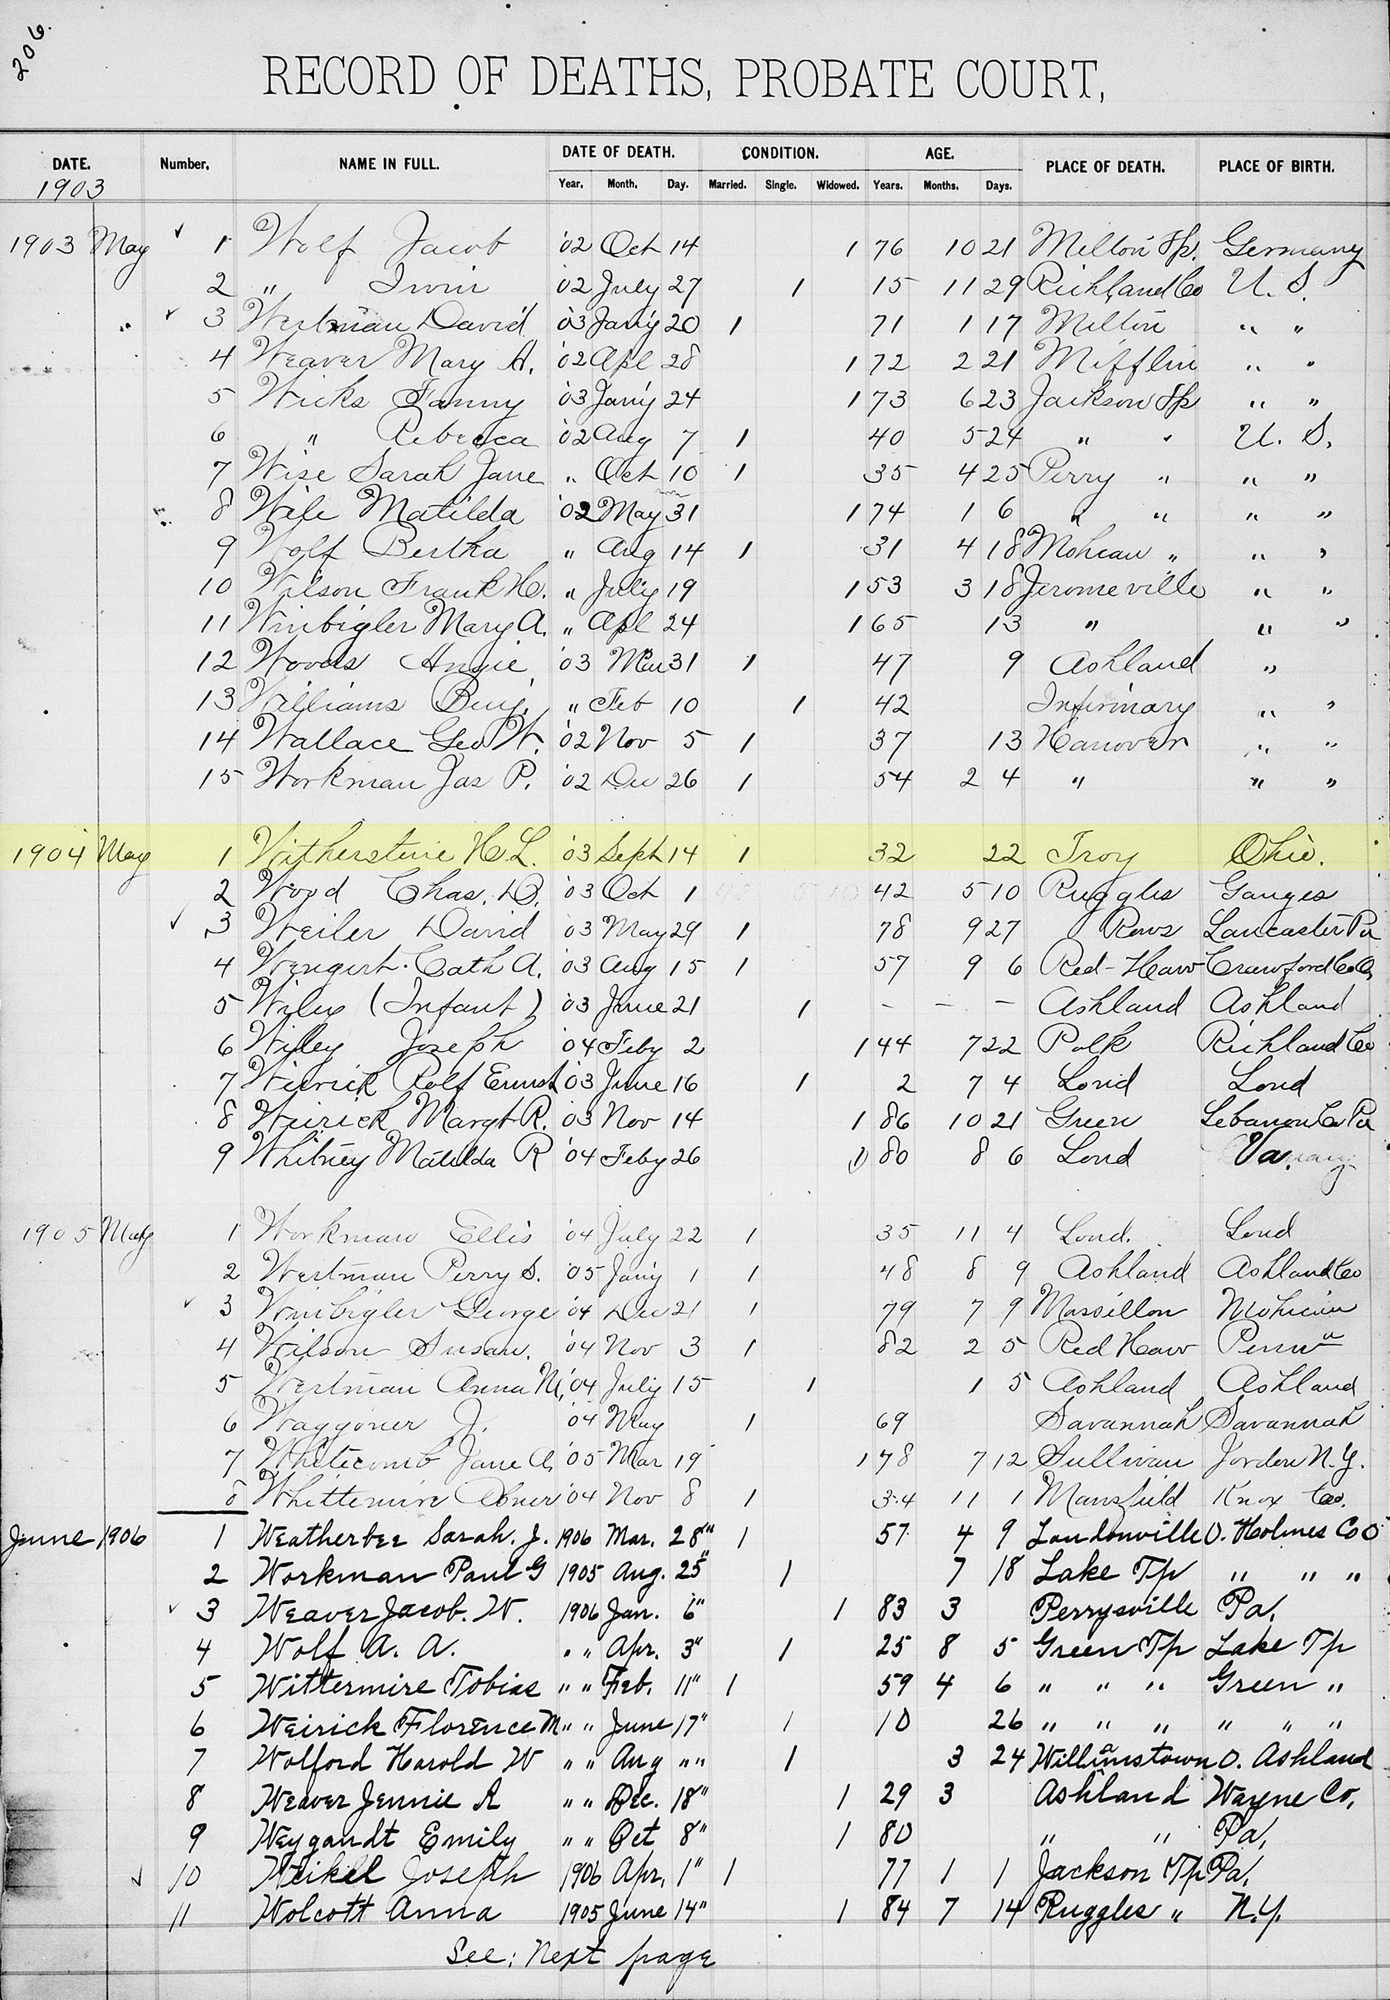 206.
RECORD OF DEATHS, PROBATE COURT,
DATE. Number. NAME IN FULL. DATE OF DEATH. CONDITION. AGE. PLACE OF DEATH. PLACE OF BIRTH.
1903 Year. Month. Day. Married. Single. Widowed. Years. Months. Days.
1903 May ✓ 1 Wolf Jacob '02 Oct 14 1 76 10 21 Milton Tp. Germany
2 " Irvin '02 July 27 1 15 11 29 Richland Co U. S.
" ✓ 3 Wertman David '03 Jan'y 20 1 71 1 17 Milton " "
4 Weaver Mary A. '02 Apl 28 1 72 2 21 Mifflin " "
5 Wicks Fanny '03 Jan'y 24 1 73 6 23 Jackson Tp " "
6 " Rebecca '02 Aug 7 1 40 5 24 " " U. S.
7 Wise Sarah Jane " Oct 10 1 35 4 25 Perry " " "
8 Wile Matilda '02 May 31 1 74 1 6 " " " "
9 Wolf Bertha " Aug 14 1 31 4 18 Mohican " " "
10 Wilson Frank H. " July 19 1 53 3 18 Jeromeville " "
11 Winbigler Mary A. " Apl 24 1 65 13 " " "
12 Woods Angie '03 Mar 31 1 47 9 Ashland "
13 Williams Benj. " Feb 10 1 42 Infirmary " "
14 Wallace Geo W. '02 Nov 5 1 37 13 Hanover " "
15 Workman Jas P. '02 Dec 26 1 54 2 4 " " "
1904 May 1 Witherstine H. L. '03 Sept 14 1 32 22 Troy Ohio.
2 Wood Chas. D. '03 Oct 1 42 5 10 Ruggles Ganges
✓ 3 Weiler David '03 May 29 1 78 9 27 Rows Lancaster Pa
4 Wengert Cath A. '03 Aug 15 1 57 9 6 Red-Haw Crawford Co O
5 Wiley (Infant) '03 June 21 1 - - - Ashland Ashland
6 Willey Joseph '04 Feby 2 1 44 7 22 Polk Richland Co
7 Wierick Rolf Ernest '03 June 16 1 2 7 4 Loud Loud
8 Weirick Margt R. '03 Nov 14 1 86 10 21 Green Lebanon Co Pa
9 Whitney Matilda R '04 Feby 26 1 80 8 6 Loud Va.
1905 May 1 Workman Ellis '04 July 22 1 35 11 4 Loud. Loud
2 Wertman Perry S. '05 Jan'y 1 1 48 8 9 Ashland Ashland Co
✓ 3 Winbigler George '04 Dec 21 1 79 7 9 Massillon Mohican
4 Wilson Susan. '04 Nov 3 1 82 2 5 Red Haw Penn a
5 Wertman Anna M. '04 July 15 1 1 5 Ashland Ashland
6 Waggoner J. '04 May 1 69 Savannah Savannah
7 Whitcomb Jane A. '05 Mar 19 1 78 7 12 Sullivan Jorden N. Y.
8 Whittemire Abner '04 Nov 8 1 34 11 1 Mansfield Knox Co.
June 1906 1 Weatherbee Sarah. J. 1906 Mar. 28" 1 57 4 9 Loudonville O. Holmes Co O
2 Workman Paul G 1905 Aug. 25" 1 7 18 Lake Tp " " "
✓ 3 Weaver Jacob. W. 1906 Jan. 6" 1 83 3 Perrysville Pa.
4 Wolf A. A. " " Apr. 3" 1 25 8 5 Green Tp Lake Tp
5 Wittermire Tobias " " Feb. 11" 1 59 4 6 " " " Green "
6 Weirick Florence M " " June 17" 1 10 26 " " " " " "
7 Wolford Harold W " " Aug " " 1 3 24 Williamstown O. Ashland
8 Weaver Jennie A " " Dec. 18" 1 29 3 Ashland Wayne Co.
9 Weygandt Emily " " Oct 8" 1 80 " " Pa.
✓ 10 Weikel Joseph 1906 Apr. 1" 1 77 1 1 Jackson Tp Pa.
11 Wolcott Anna 1905 June 14" 1 84 7 14 Ruggles " N.Y.
See: Next page